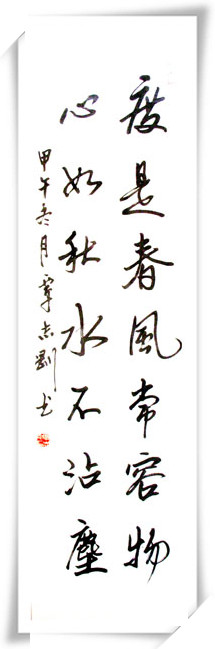 度是春風常容物
心如秋水不沾塵
甲午冬月覃志剛书